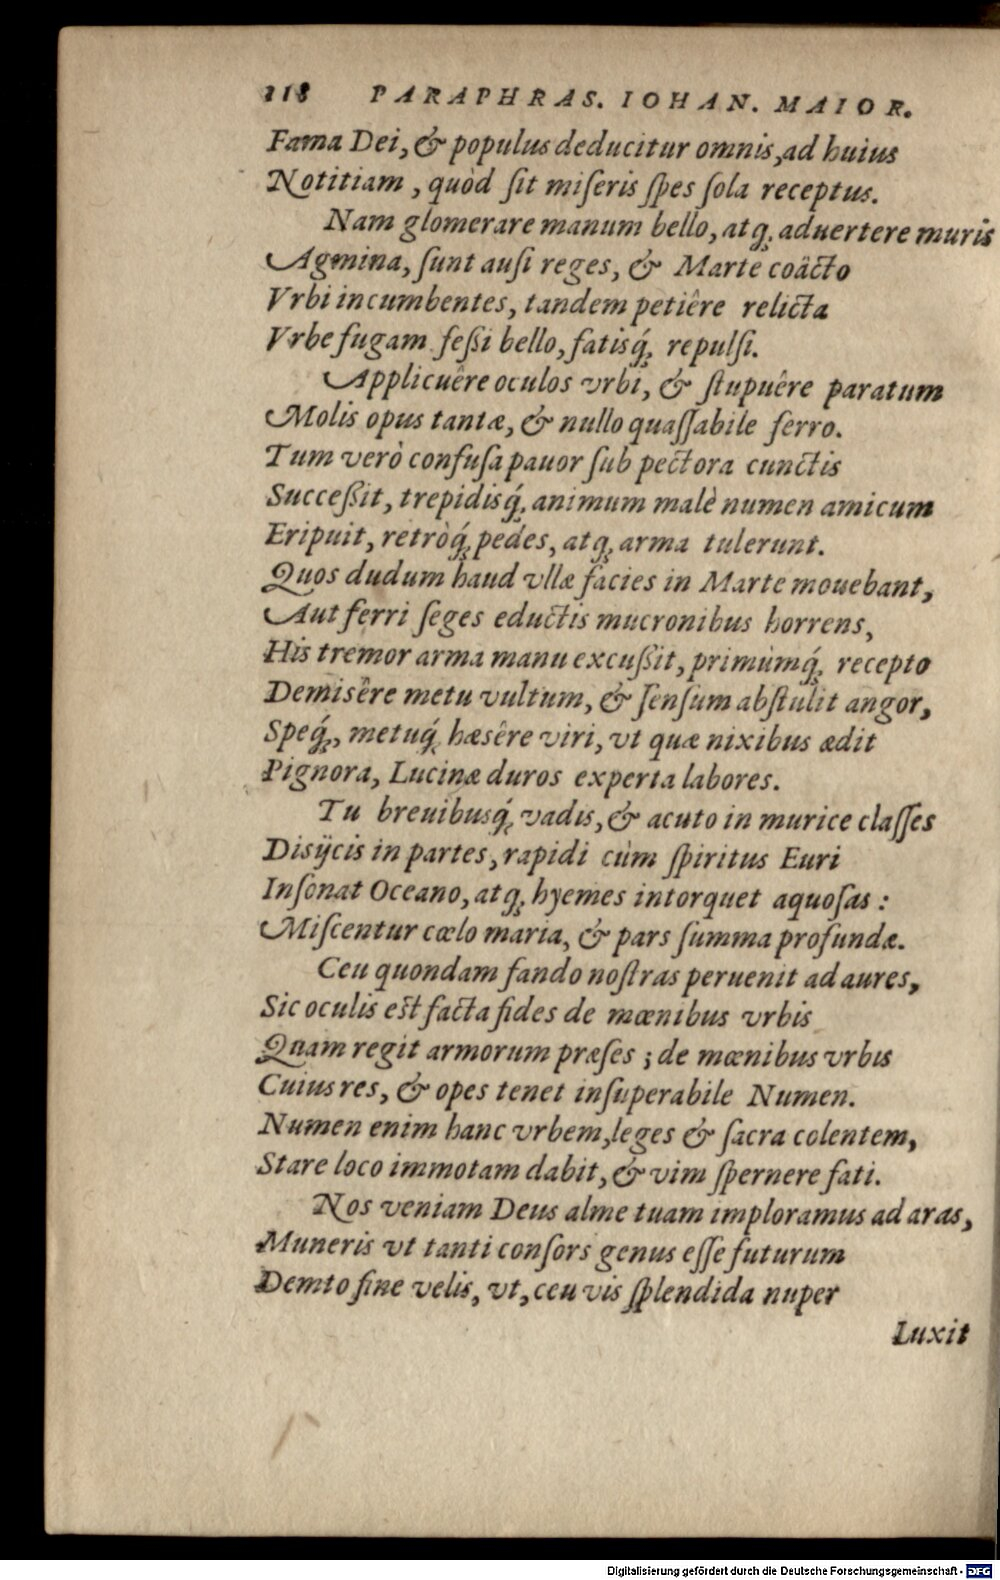 118 PARAPHRAS. IOHAN. MAIOR.
Fama Dei, & populus deducitur omnis, ad huius
Notitiam, quòd ſit miſeris ſpes ſola receptus.
Nam glomerare manum bello, atq; aduertere muris
Agmina, ſunt auſi reges, & Marte coäcto
Vrbi incumbentes, tandem petiêre relicta
Vrbe fugam feßi bello, fatisq́; repulſi.
Applicuêre oculos vrbi, & ſtupuêre paratum
Molis opus tantæ, & nullo quaſſabile ferro.
Tum verò confuſa pauor ſub pectora cunctis
Succeßit, trepidisq́; animum malè numen amicum
Eripuit, retròq́; pedes, atq; arma tulerunt.
Quos dudum haud vllæ facies in Marte mouebant,
Aut ferri ſeges eductis mucronibus horrens,
His tremor arma manu excußit, primùmq́; recepto
Demisêre metu vultum, & ſenſum abſtulit angor,
Speq́;, metuq́; hæsêre viri, vt quæ nixibus ædit
Pignora, Lucinæ duros experta labores.
Tu breuibusq́; vadis, & acuto in murice claſſes
Disijcis in partes, rapidi cùm ſpiritus Euri
Inſonat Oceano, atq; hyemes intorquet aquoſas:
Miſcentur cœlo maria, & pars ſumma profundæ.
Ceu quondam fando noſtras peruenit ad aures,
Sic oculis eſt facta fides de mœnibus vrbis
Quam regit armorum præſes; de mœnibus vrbis
Cuius res, & opes tenet inſuperabile Numen.
Numen enim hanc vrbem, leges & ſacra colentem,
Stare loco immotam dabit, & vim ſpernere fati.
Nos veniam Deus alme tuam imploramus ad aras,
Muneris vt tanti conſors genus eſſe futurum
Demto fine velis, vt, ceu vis ſplendida nuper
Luxit
Digitalisierung gefördert durch die Deutsche Forschungsgemeinschaft - DFG